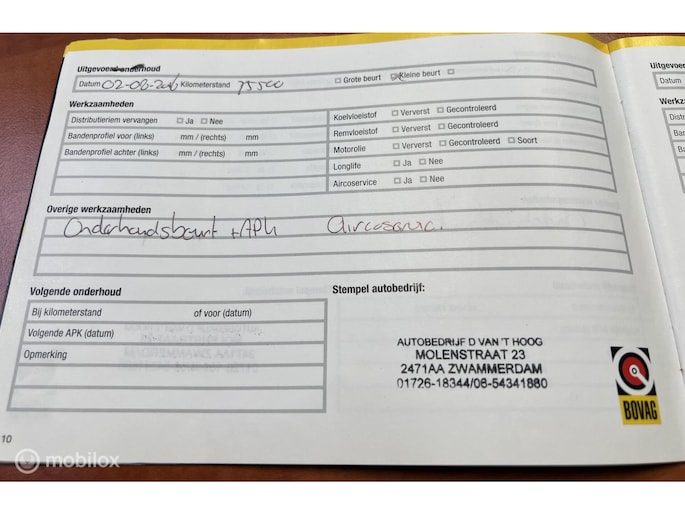 Uitgevoerd onderhoud
Datum 02-08-2016 Kilometerstand 75500 Grote beurt Kleine beurt
Werkzaamheden
Distributieriem vervangen Ja Nee
Bandenprofiel voor (links) mm / (rechts) mm
Bandenprofiel achter (links) mm / (rechts) mm
Koelvloeistof Ververst Gecontroleerd
Remvloeistof Ververst Gecontroleerd
Motorolie Ververst Gecontroleerd Soort
Longlife Ja Nee
Aircoservice Ja Nee
Overige werkzaamheden
Onderhoudsbeurt + APK Aircoservic.
Volgende onderhoud
Bij kilometerstand of voor (datum)
Volgende APK (datum)
Opmerking
Stempel autobedrijf:
AUTOBEDRIJF D VAN 'T HOOG
MOLENSTRAAT 23
2471AA ZWAMMERDAM
01726-18344/06-54341880
BOVAG
10
mobilox
Uitgevoerd
Datum
Werkz
Distribu
Banden
Banden